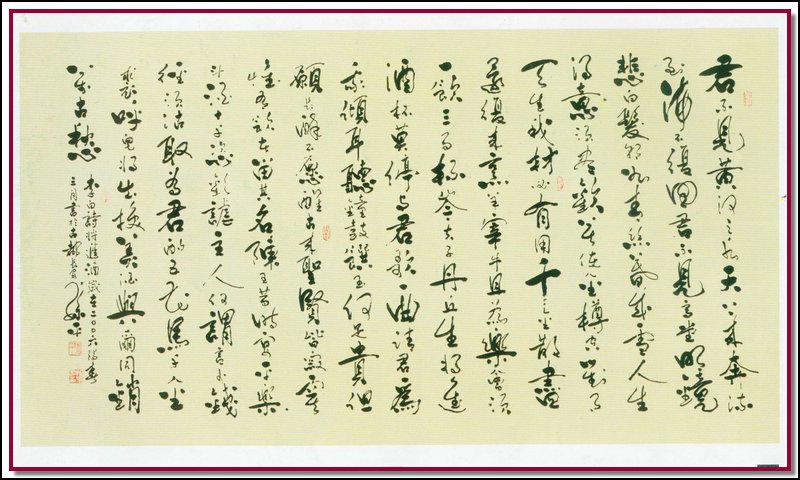 君不見黃河之水天上來奔流
到海不復回君不見高堂明鏡
悲白髮朝如青絲暮成雪人生
得意須盡歡莫使金樽空對月
天生我材必有用千金散盡
還復來烹羊宰牛且為樂會須
一飲三百杯岑夫子丹丘生將進
酒杯莫停與君歌一曲請君為
我傾耳聽鐘鼓饌玉何足貴但
願長醉不願醒古來聖賢皆寂寞
惟有飲者留其名陳王昔時宴平樂
斗酒十千恣歡謔主人何謂言少錢
徑須沽取為君酌五花馬千金
裘呼兒將出換美酒與爾同銷
萬古愁
李白詩將進酒歲在二〇〇六陽春
三月書於古都長安